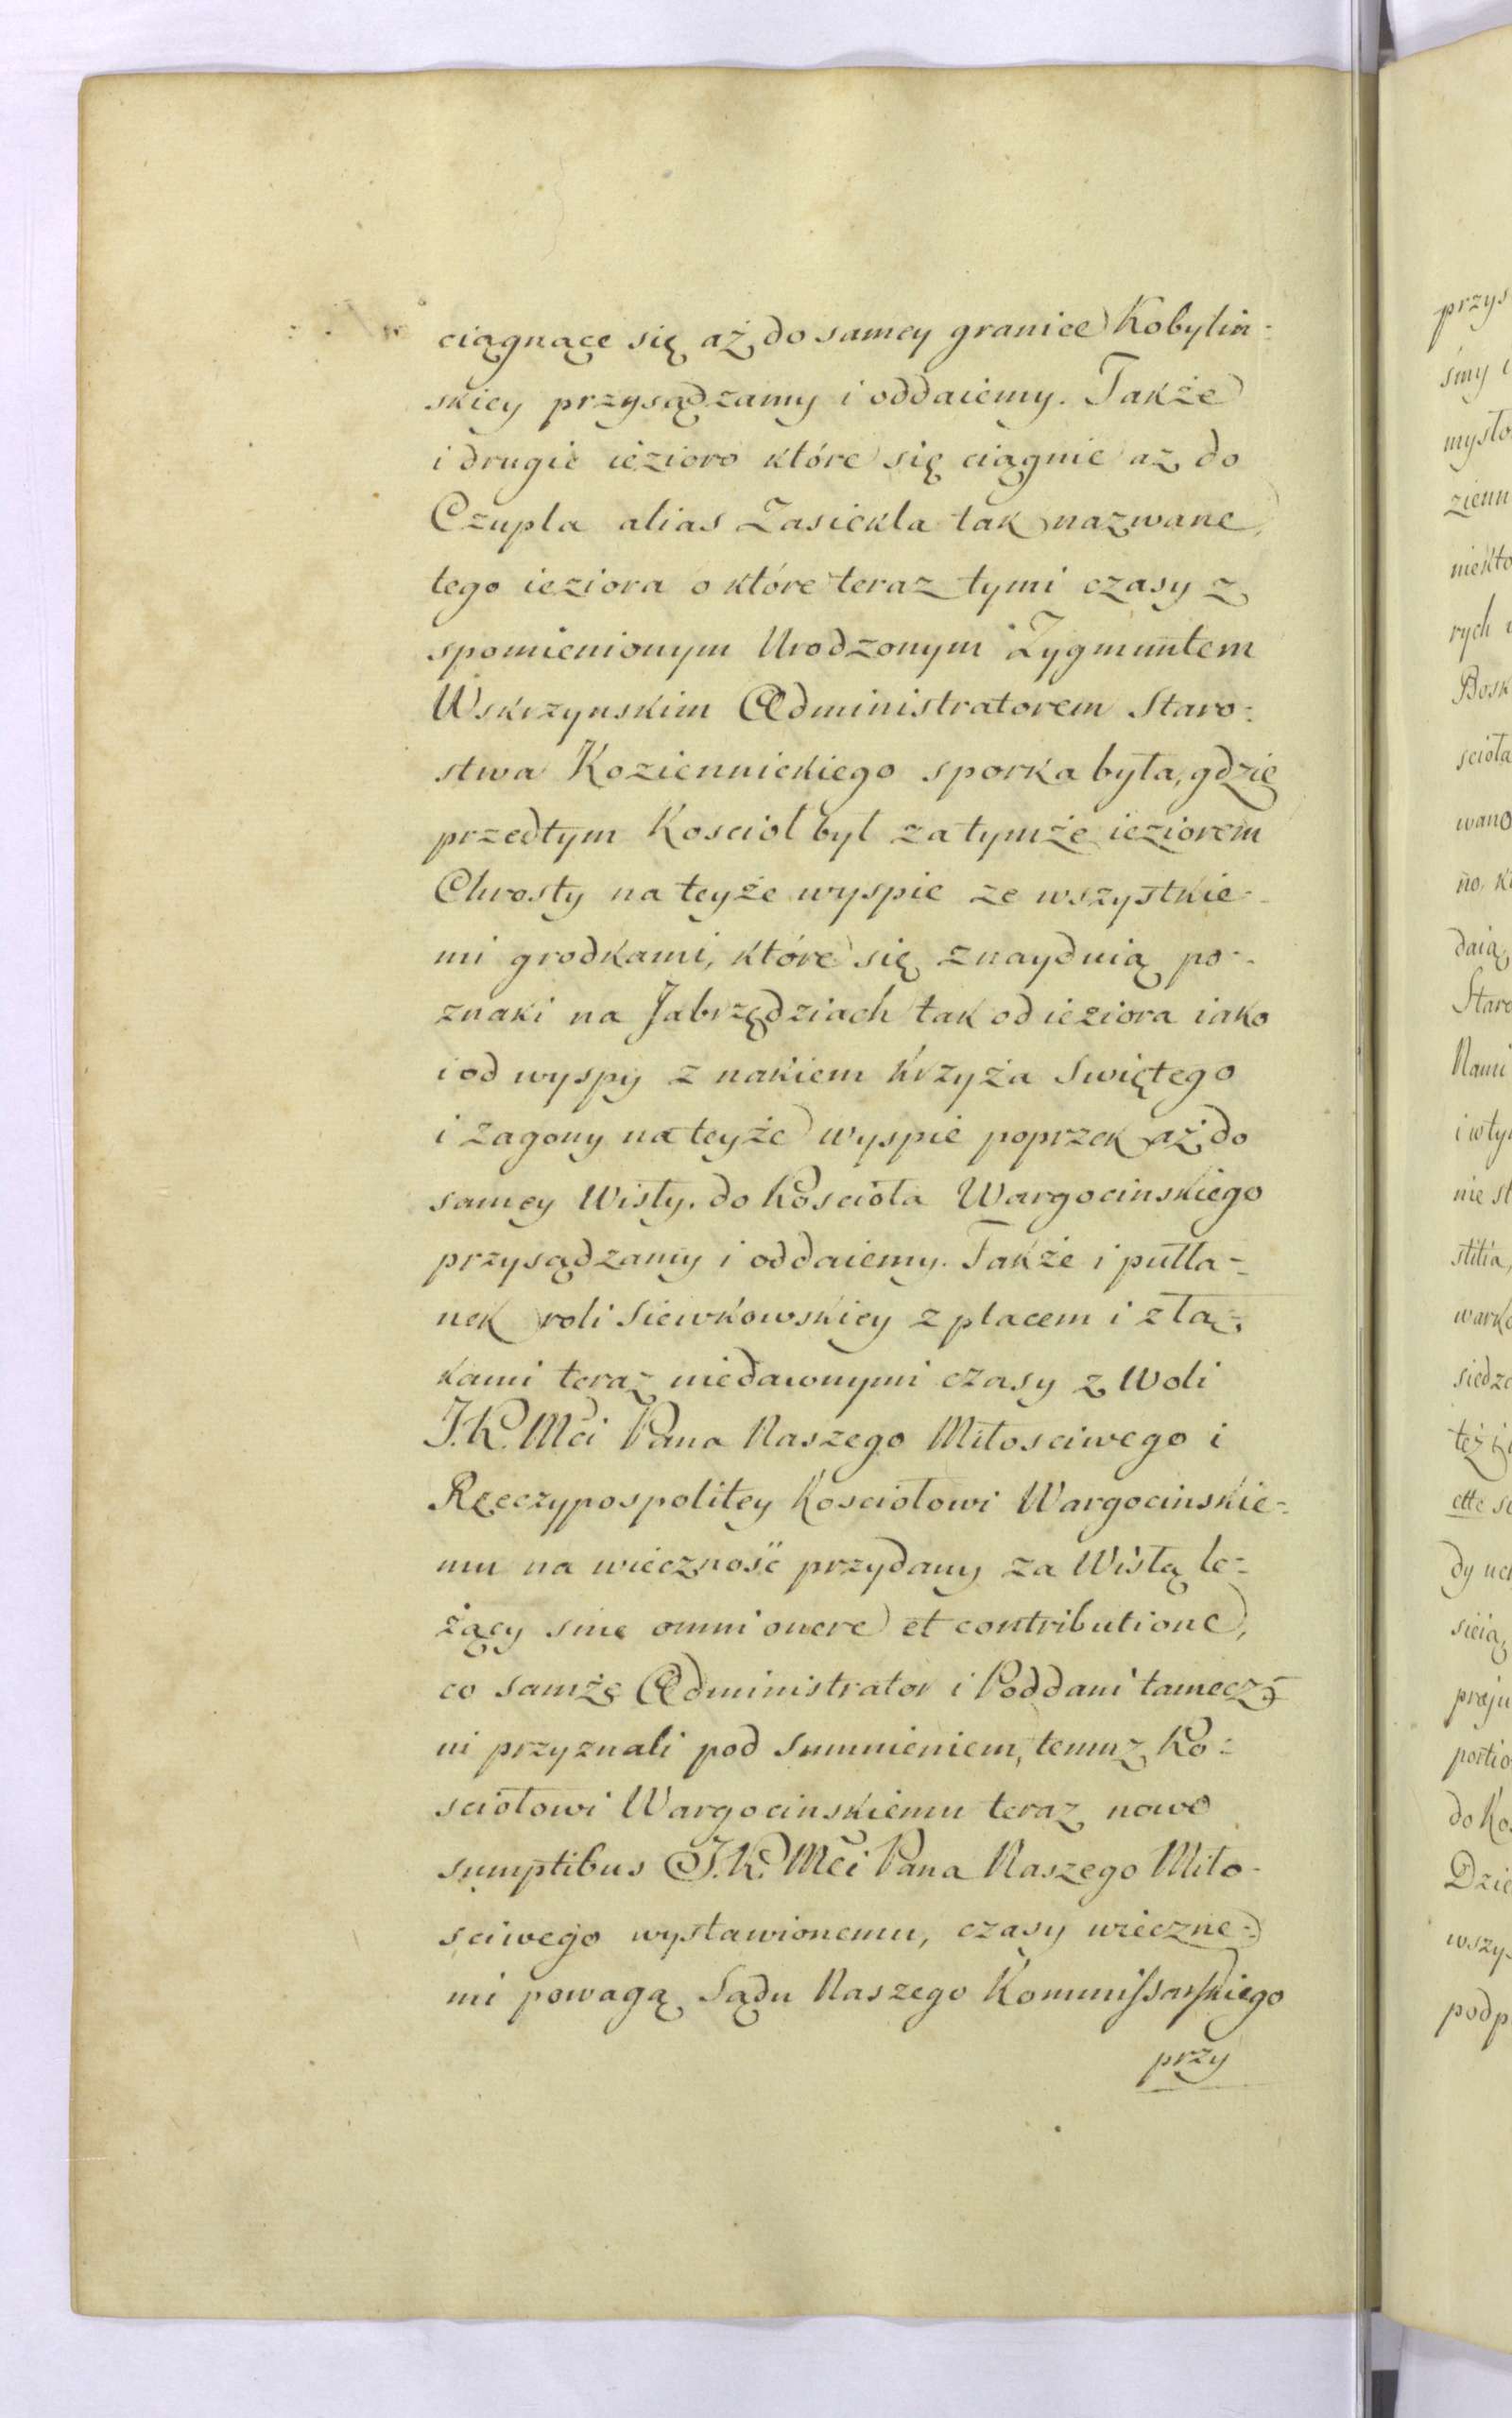 ciągnące się aż do samey granice Kobylin-
skiey przysądzamy i oddaiemy. Także
i drugie iezioro które się ciągnie aż do
Czupla alias Zasiekla tak nazwane,
tego ieziora o które teraz tymi czasy z
spomienionym Urodzonym Zygmuntem
Wskrzynskim Administratorem Staro-
stwa Koziennickiego sporka była, gdzie
przedtym Kosciol byl za tymże ieziorem
Chrosty na teyże wyspie ze wszystkie-
mi grodkami, które się znayduią po-
znaki na Jabrzędziach tak od ieziora iako
i od wyspy z nakiem Krzyża Swiętego
i zagony na teyże wyspie poprzek aż do
samey Wisły. do Kosciola Wargocinskiego
przysądzamy i oddaiemy. Także i pułła-
nek roli Siewkowskiey z placem i z łą-
kami teraz niedawnymi czasy z Woli
J.K. Mci Pana Naszego Miłosciwego i
Rzeczypospolitey Kosciołowi Wargocinskie-
mu na wieczność przydany za Wisłą le-
żący sine omni onere et contributione,
co samże Administrator i Poddani tamecz-
ni przyznali pod Sumnieniem, temuz Ko-
sciołowi Wargocinskiemu teraz nowo
sumptibus J.K. Mci Pana Naszego Miło-
sciwego wystawionemu, czasy wieczne-
mi powagą Sądu Naszego Kommissarskiego
przy
przys
śmy
mysło
zienn
niekto
rych
Bosk
scioła
wano
daią
Staro
Nami
nie st
stitia,
siedzo
sieią
praju
portio
do Ko
Dzie
wszy
podp